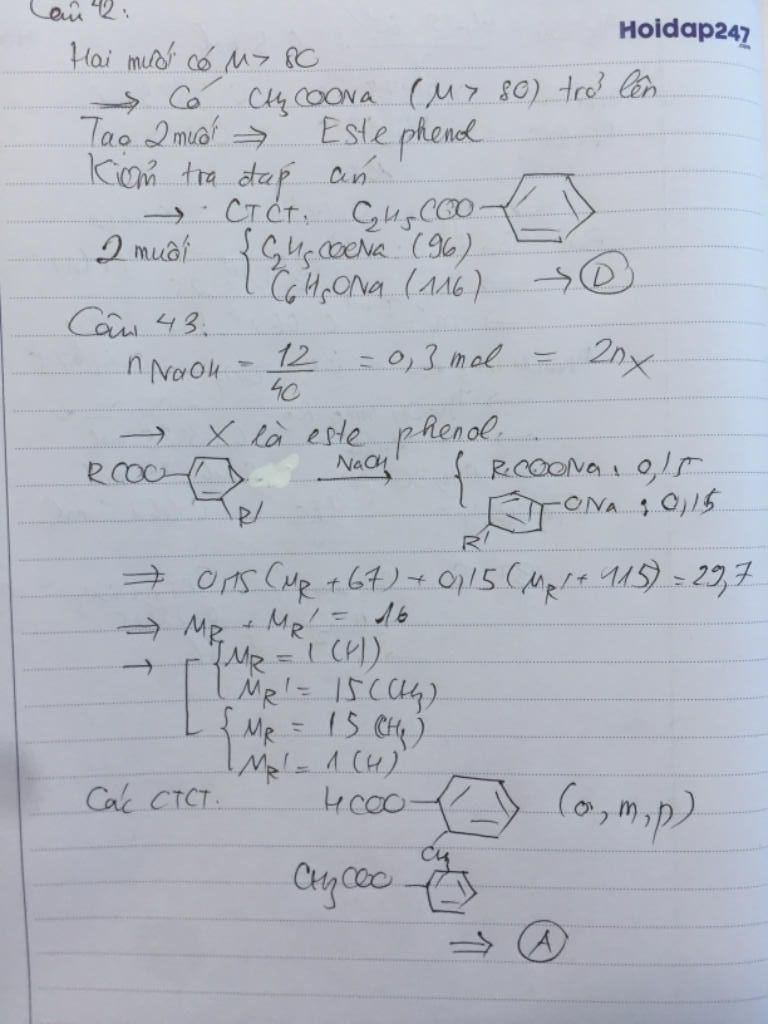 Câu 42:
Hoidap247
.com
Hai muối có M > 80
⇒ Có CH3COONa (M > 80) trở lên
Tạo 2 muối ⇒ Este phenol
Kiểm tra đáp án
→ CTCT: C2H5COO-
2 muối { C2H5COONa (96)
C6H5ONa (116) → D
Câu 43:
nNaOH = 12/40 = 0,3 mol = 2nX
→ X là este phenol.
RCOO- R' NaOH → { RCOONa : 0,15
R' -ONa : 0,15
⇒ 0,15(MR + 67) + 0,15(MR' + 115) = 29,7
⇒ MR + MR' = 16
→ { MR = 1 (H)
MR' = 15 (CH3)
{ MR = 15 (CH3)
MR' = 1 (H)
Các CTCT. HCOO- CH3 (o, m, p)
CH3COO-
⇒ A